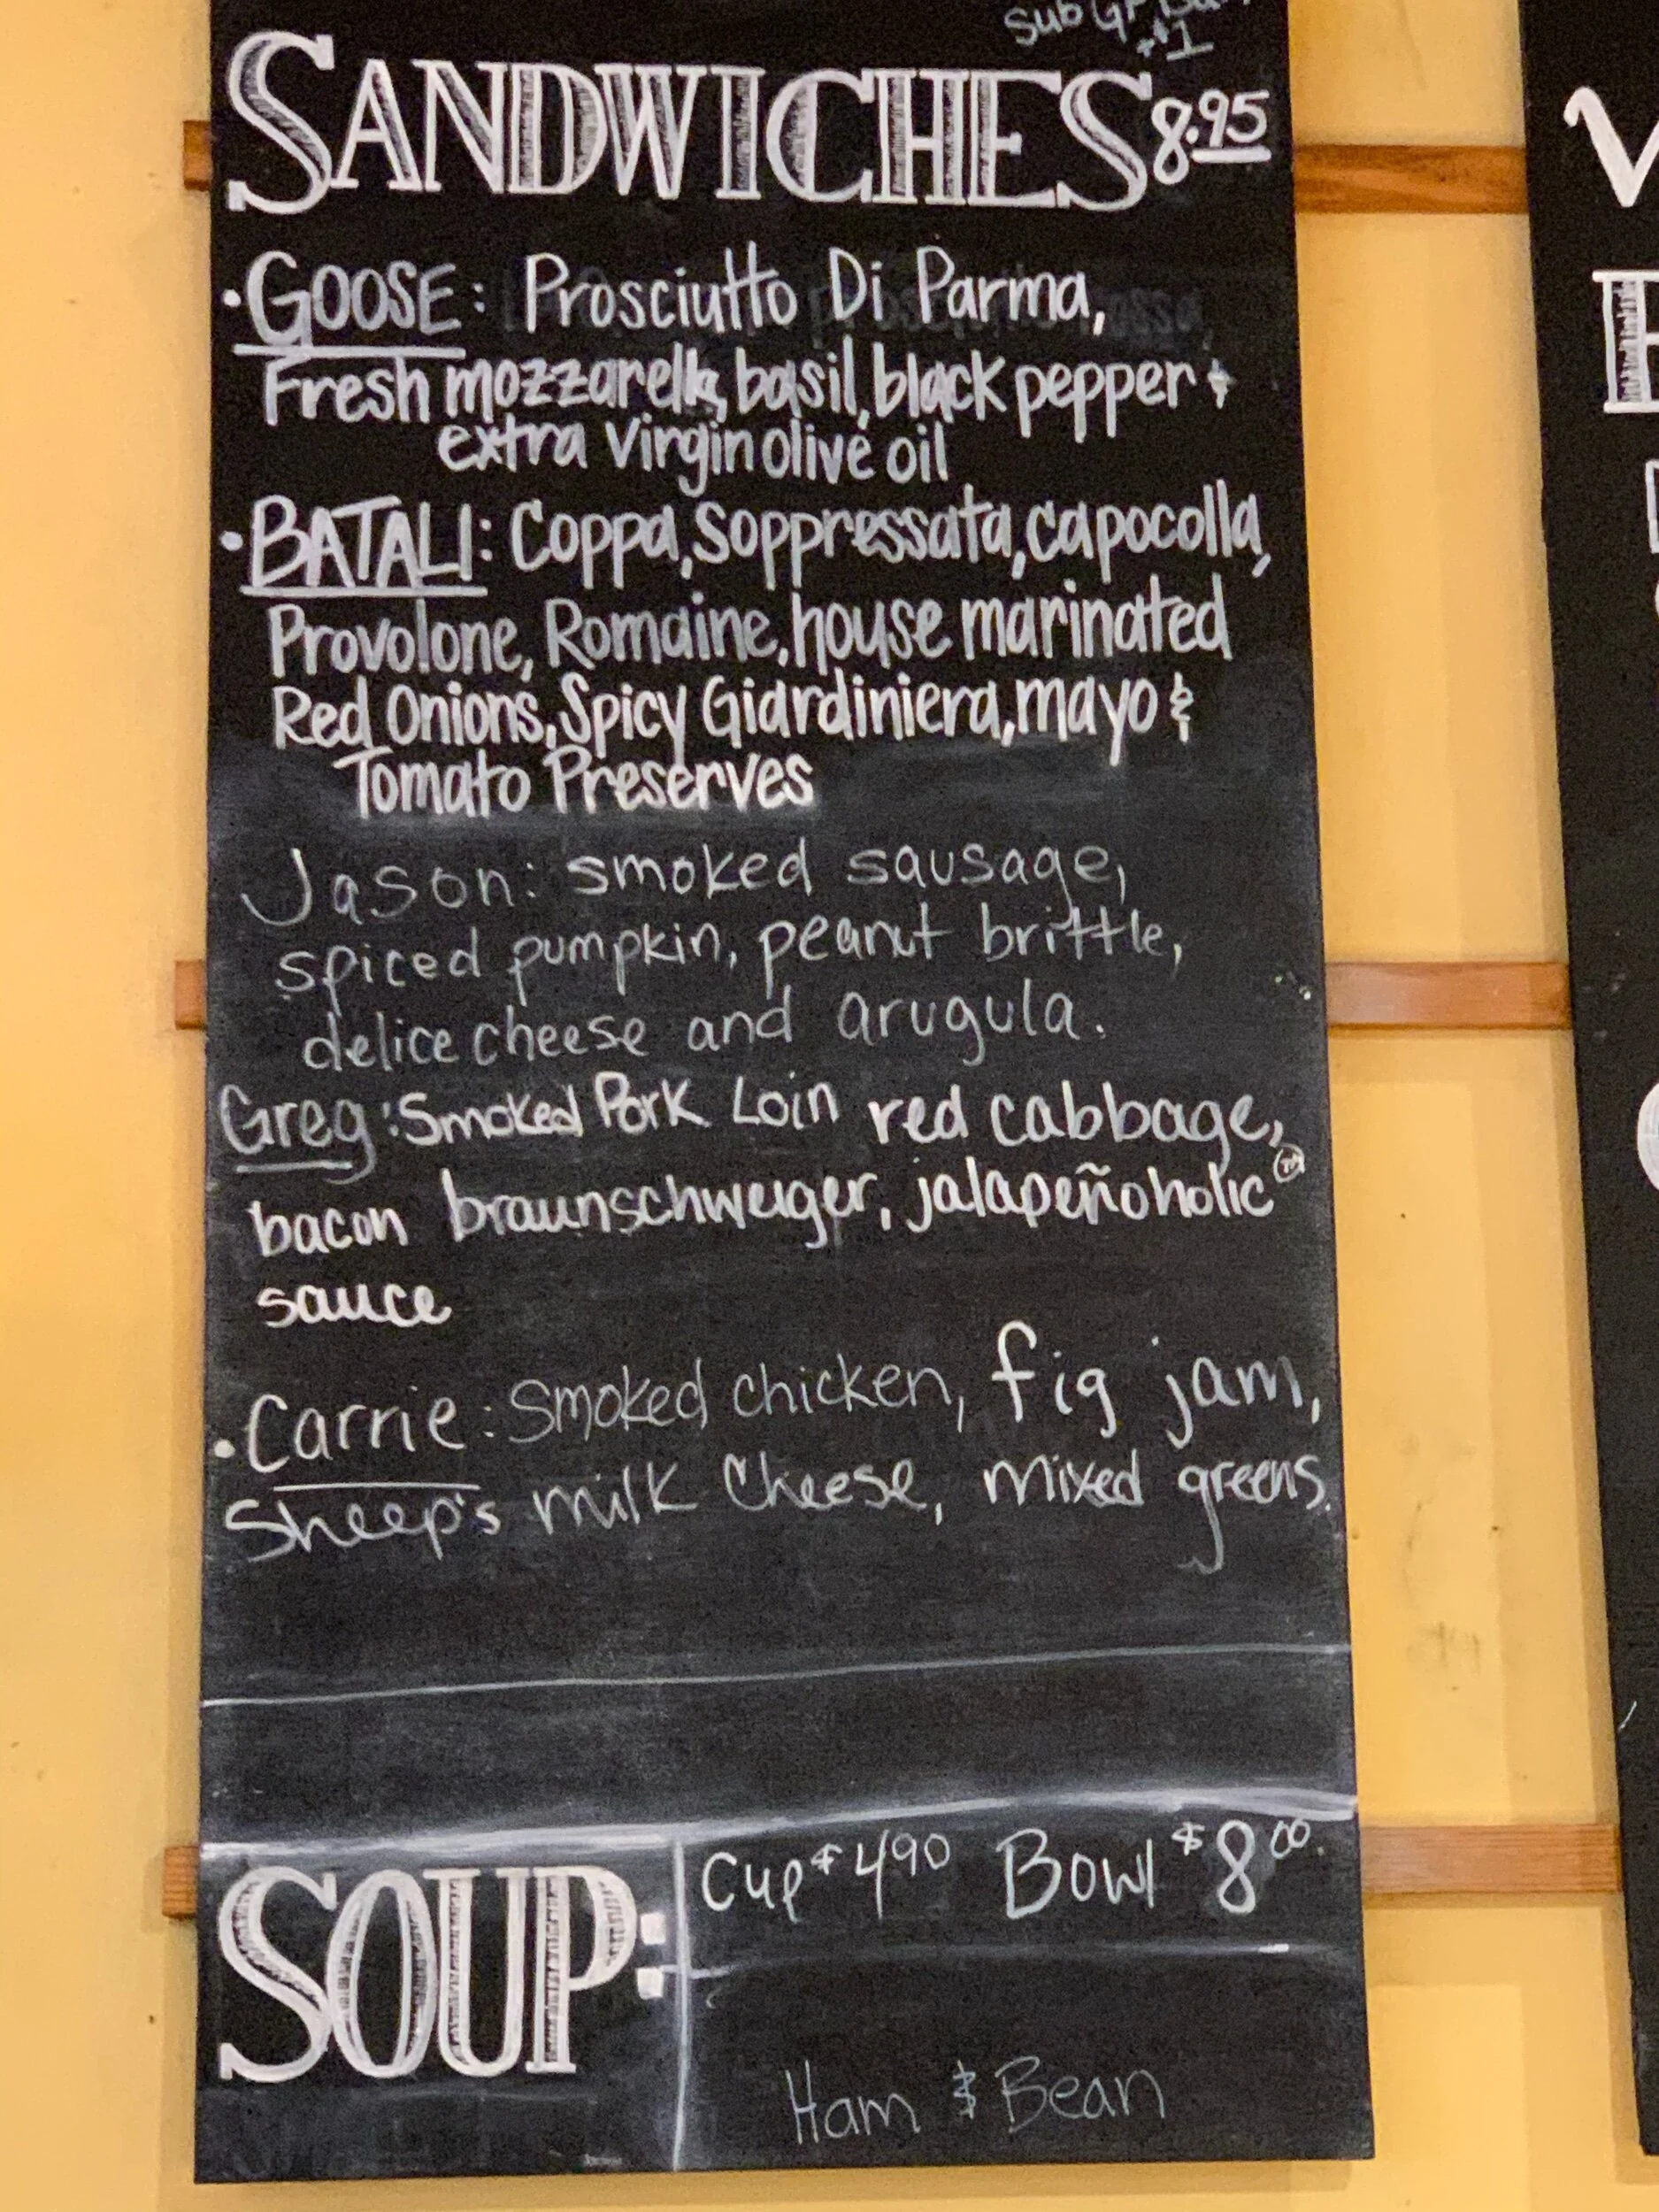 Sub GF
+$1
SANDWICHES 8.95
• GOOSE: Prosciutto Di Parma,
Fresh mozzarella, basil, black pepper +
extra virgin olive oil
• BATALI: Coppa, Soppressata, capocolla,
Provolone, Romaine, house marinated
Red Onions, Spicy Giardiniera, mayo &
Tomato Preserves
Jason: smoked sausage,
spiced pumpkin, peanut brittle,
delice cheese and arugula.
Greg: Smoked Pork Loin red cabbage,
bacon braunschweiger, jalapeñoholic ™
sauce
• Carrie: Smoked chicken, fig jam,
Sheep's milk Cheese, mixed greens.
SOUP:
Cup $4.90 Bowl $8.00.
Ham & Bean